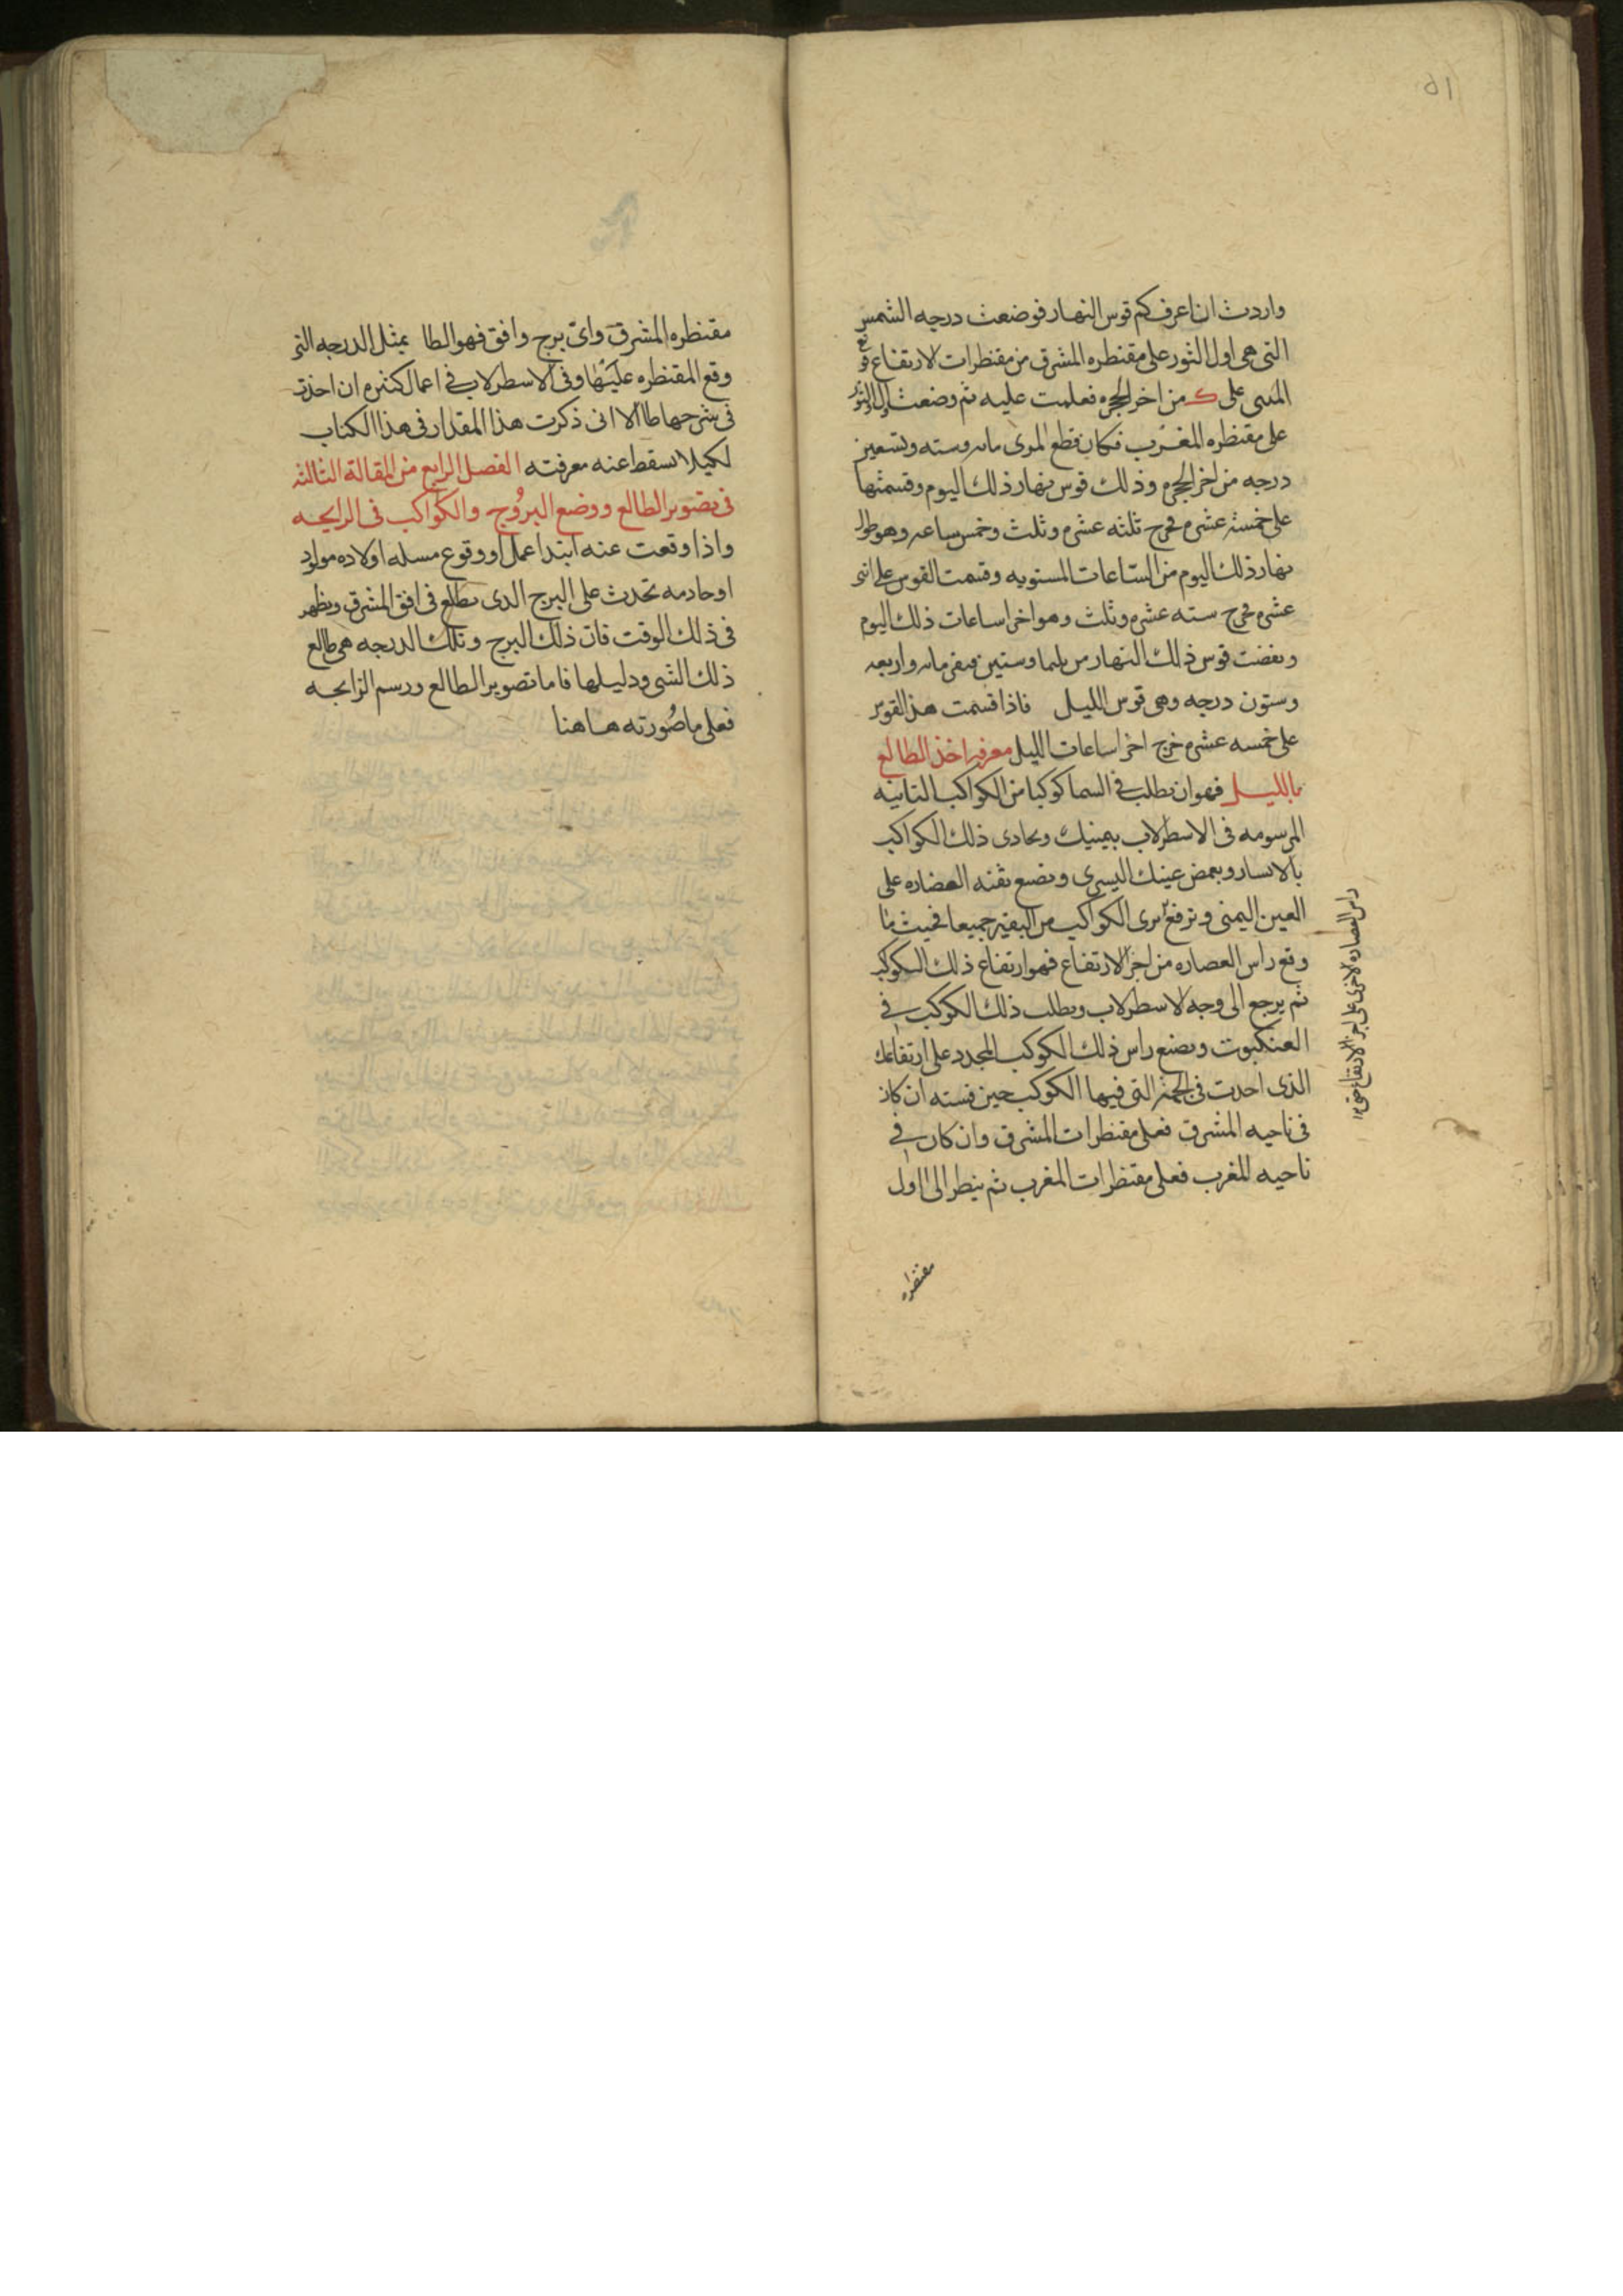 واردت ان اعرف كم قوس النهار فوضعت درجه الشمس
التى هى اول الثور على مقنطره المشرق من مقنطرات الارتفاع فوقع
المرى على ك من اخر الحجره فعلمت عليه ثم وضعت اول الثور
على مقنطره المغرب فكان قطع المرى مايه وسته وتسعين
درجه من اخر الحجره وذلك قوس نهار ذلك اليوم وقسمتها
على خمسة عشره فخرج ثلثه عشره وثلث وخمس ساعه وهو طول
نهار ذلك اليوم من الساعات المستويه وقسمت القوس على اثنى
عشره فخرج سته عشره وثلث وهو اخر اساعات ذلك اليوم
ونقضت قوس ذلك النهار من ثلثما وستين فبقى مايه واربعه
وستون درجه وهى قوس الليل فاذا قسمت هذ القوس
على خمسه عشره خرج اخر اساعات الليل معرفه اخذ الطالع
بالليل فهو ان تطلب فى السما كوكبا من الكواكب الثابته
المرسومه فى الاسطرلاب بيمينك وتحادى ذلك الكواكب
بالايسار وتغمض عينك اليسرى وتضع ثقبه العضاره على
العين اليمنى وترفع ترى الكواكب من البقية جميعا فحيث ما
وقع راس العصاره من اجزا الارتفاع فهو ارتفاع ذلك الكوكب
ثم يرجع الى وجه الاسطرلاب وتطلب ذلك الكوكب فى
العنكبوت وتضع راس ذلك الكوكب المجدد على ارتفاعك
الذى احدت فى الجهة التى فيها الكوكب حين قسته ان كان
فى ناحيه المشرق فعلى مقنطرات المشرق وان كان فى
ناحيه المغرب فعلى مقنطرات المغرب ثم ينظر الى اول
راس العصاره الاخرى على اجزا الارتفاع حتى
مقنطره
مقنطره المشرق واى برج وافق فهو الطا بمثل الدرجه التى
وقع المقنطره عليها وفى الاسطرلاب فى اعمال كثيره ان اخذت
فى شرحها طال الا انى ذكرت هذا المقدار فى هذا الكتاب
لكيلا تسقط عنه معرفته الفصل الرابع من المقالة الثالثه
فى تصوير الطالع ووضع البروج والكواكب فى الزايجه
واذا وقعت عنه ابتدا عمل او وقوع مسله اولاده مولود
او حادمه تحدث على البرج الدى يطلع فى افق المشرق ويظهر
فى ذلك الوقت فان ذلك البرج وتلك الدرجه هى طالع
ذلك الشى ودليلها فاما تصوير الطالع ورسم الزايجه
فعلى ما صُورته هاهنا